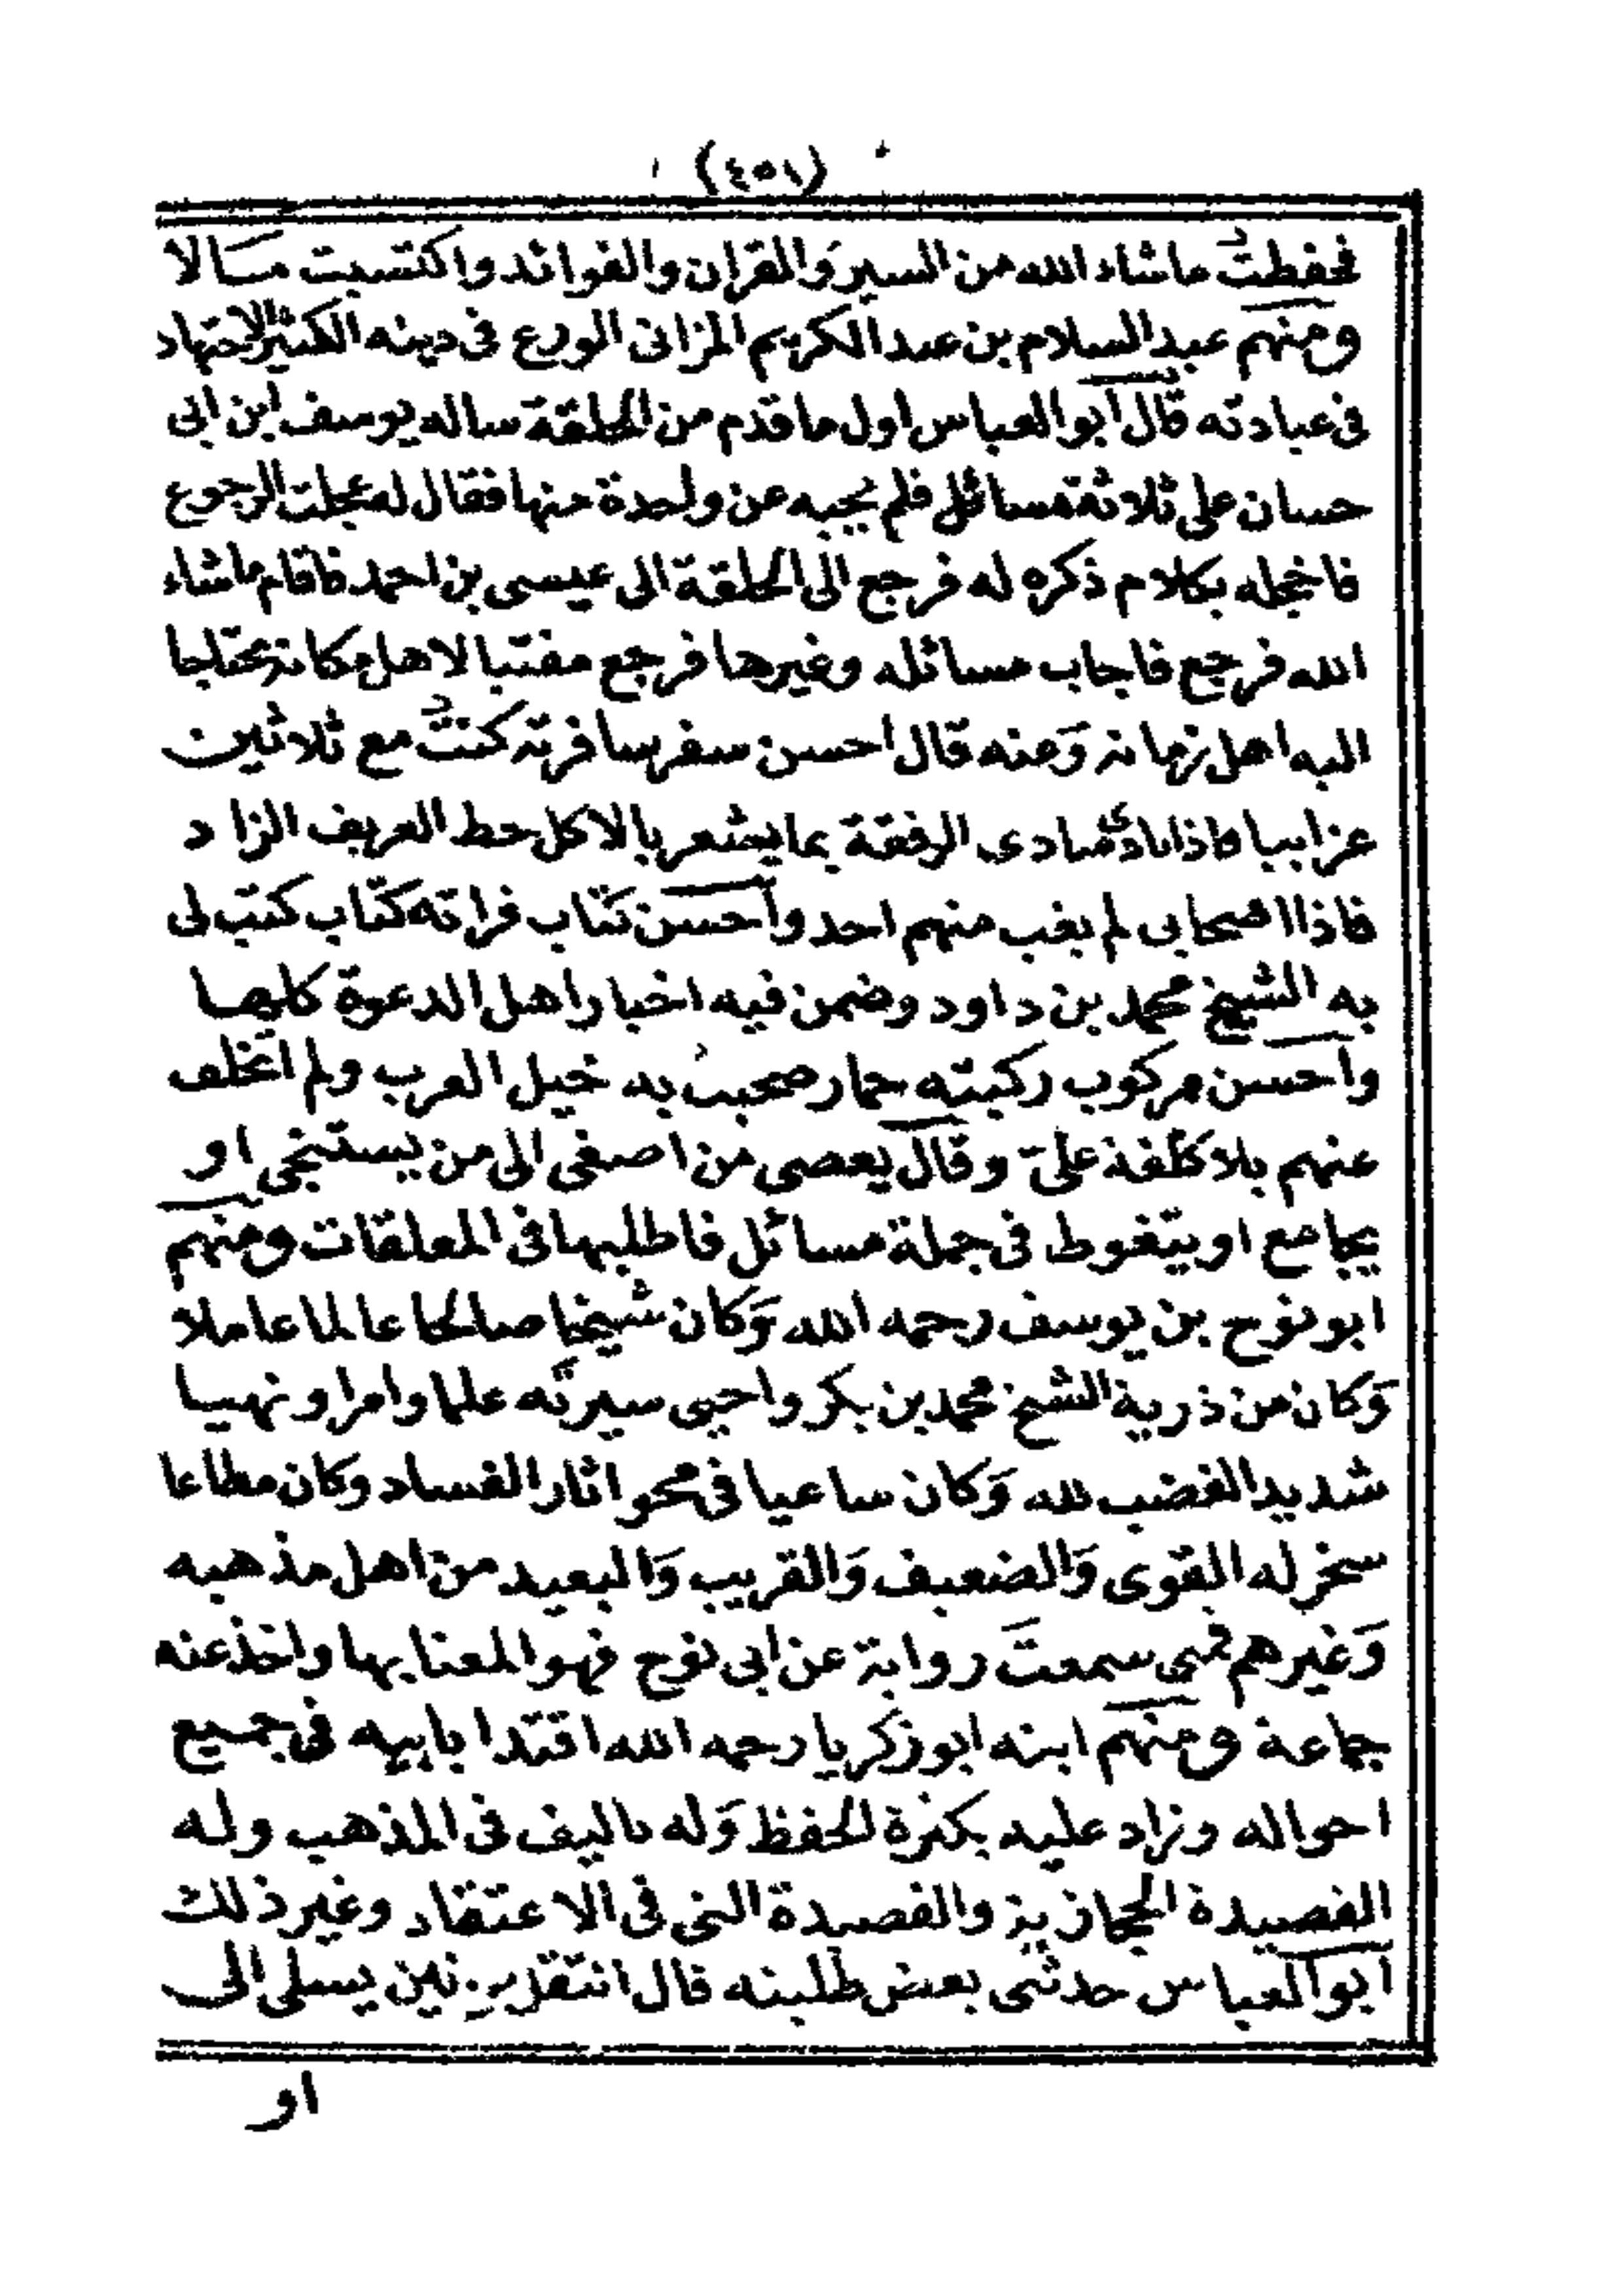 (٤٥١)
فحفظتُ ماشاء الله من السير وَالقران والفوائد واكتسبت مسَالا
ومنهم عبد السلام بن عبد الكريم المزاتى الورع فى دينه الكثير الاجتهاد
فى عبادته قال ابو العباس اول ما قدم من الحلقة ساله يوسف ابن ابى
حسان على ثلاثة مسائل فلم يجبه عن واحدة منها فقال له عجلت الرجوع
فاخجله بكلام ذكره له فرجع الى الحلقة الى عيسى بن احمد فاقام ماشاء
الله فرجع فاجاب مسائله وغيرها فرجع مفتيا لاهل مكانه محتاجا
اليه اهل زمانه وَعنه قال احسن سفر سافرته كنتُ مع ثلاثين
عزابيا فاذا نادى منادى الرفقة بما يشعر بالاكل حط العريف الزاد
فاذا اصحابى لم يغب منهم احد واحسن كتاب قراته كتاب كتب لى
به الشيخ محمد بن داود وضمن فيه اخبار اهل الدعوة كلها
واحسن مركوب ركبته حمار صحبتُ به خيل العرب ولم اتخلف
عنهم بلا كلفة علىّ وقال يعصى من اصغى الى من يستنجى او
يجامع او يتغوط فى جملة مسائل فاطلبها فى المعلقات ومنهم
ابو نوح بن يوسف رحمه الله وَكان شيخا صالحا عالما عاملا
وَكان من ذرية الشيخ محمد بن بكر واحيى سيرته علما وامرا ونهيا
شديد الغضب لله وَكان ساعيا فى محو اثار الفساد وكان مطاعا
سخر له القوى وَالضعيف وَالقريب وَالبعيد من اهل مذهبه
وَغيرهم فمتى سمعتَ رواية عن ابى نوح فهو المعنا بها واخذ عنه
جماعة ومنهم ابنه ابو زكريا رحمه الله اقتدا بابيه فى جميع
احواله وزاد عليه بكثرة الحفظ وَله تاليف فى المذهب وله
القصيدة الحجازية والقصيدة التى فى الاعتقاد وغير ذلك
ابو العباس حدثنى بعض طلبته قال انتقل نين يسلى الى
او